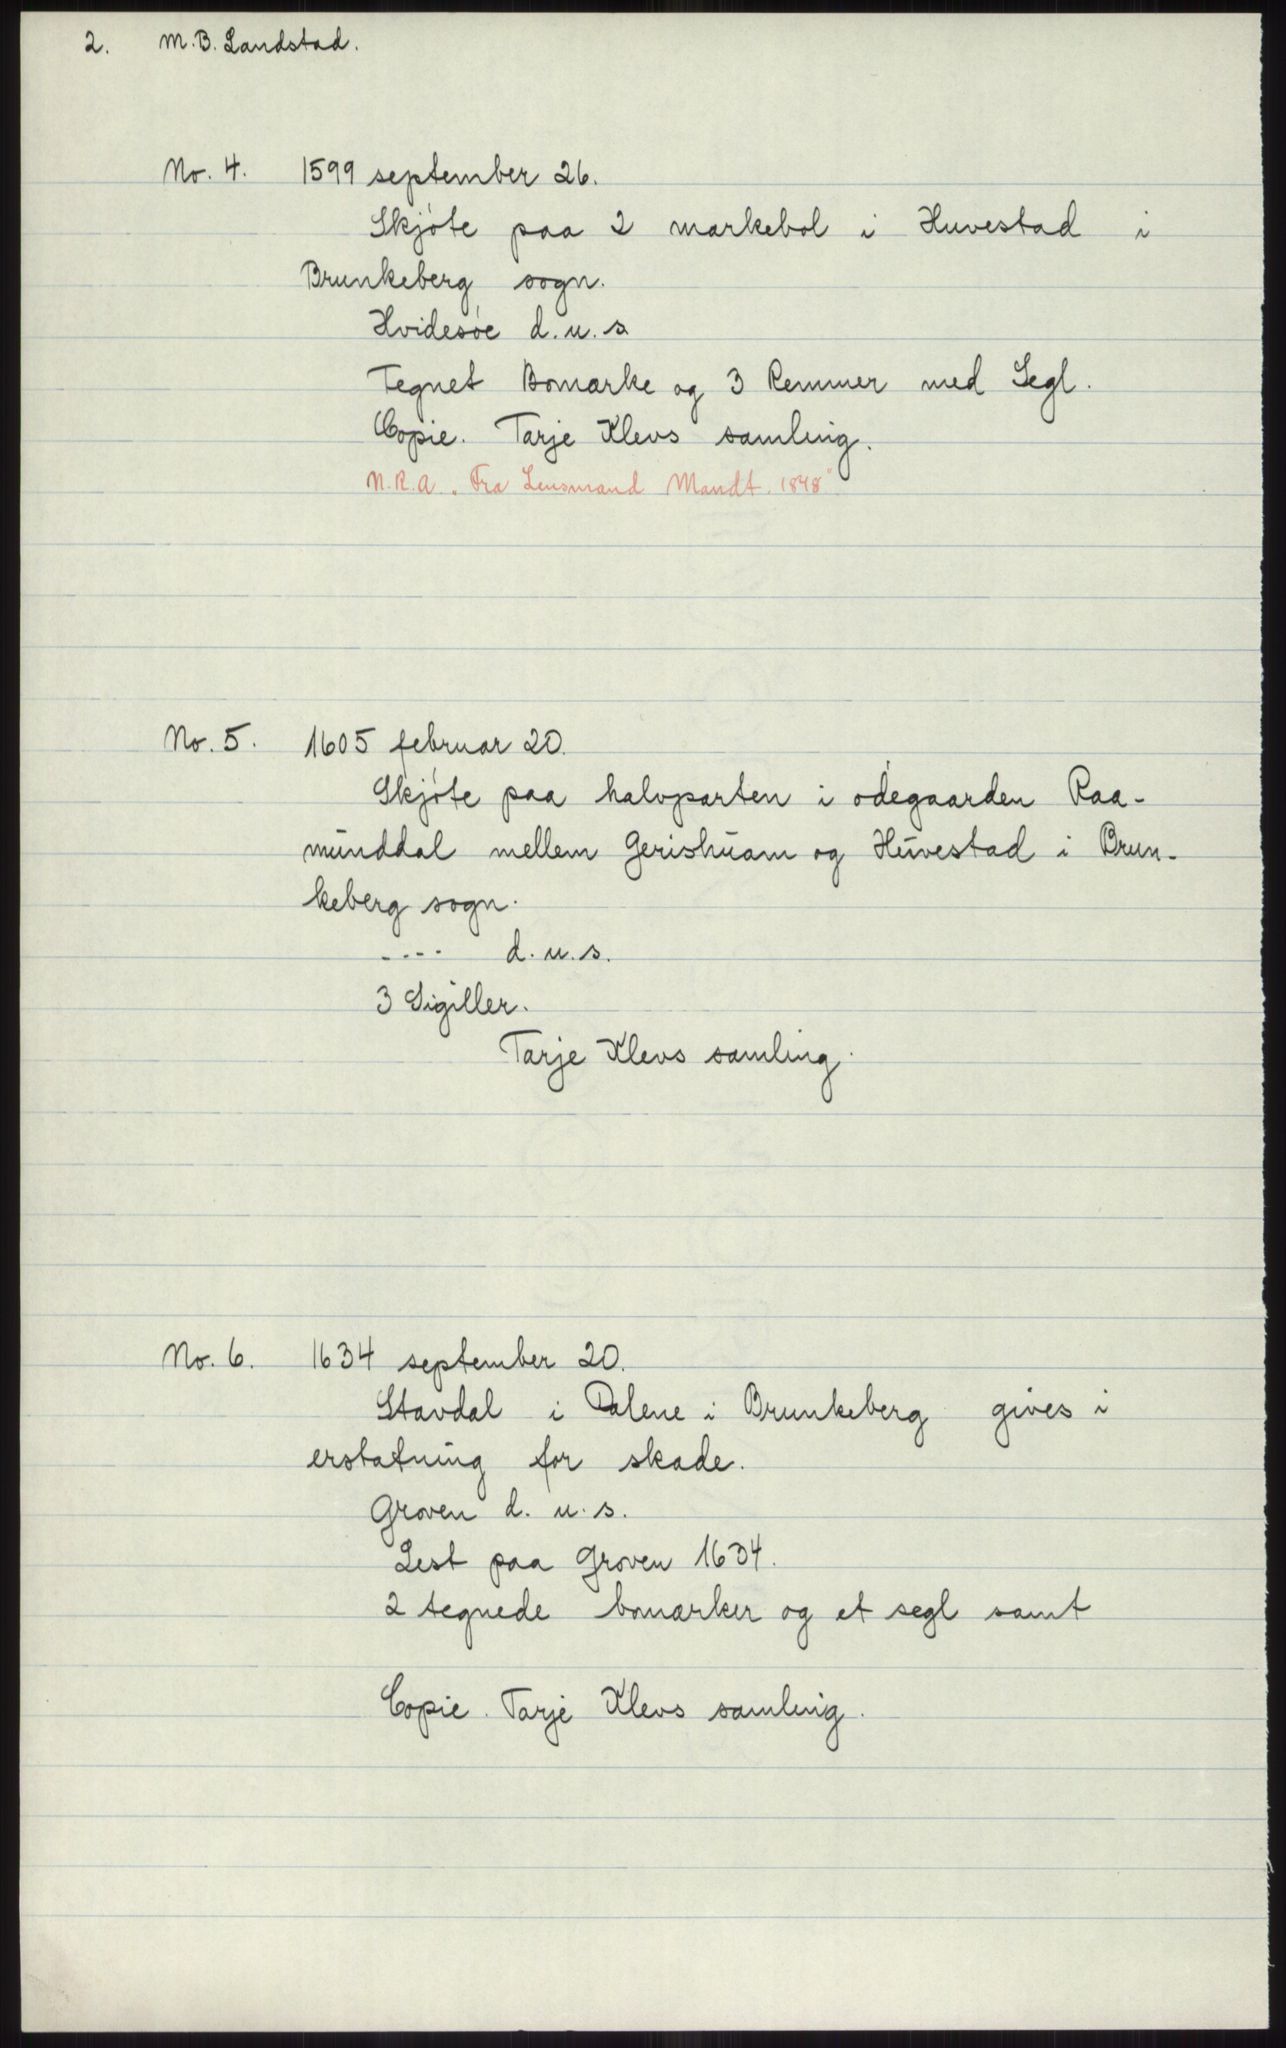 2. M.B. Landstad.
No. 4. 1599 september 26.
Skjóte paa 2 markebol i Huvestad i
Brunkeberg sogn.
Hvidesóe d.u.s
Tegnet Bomarke og 3 Remmer med Segl.
Copie. Tarje Klevs samling.
N.R.A. „Fra Lensmand Mandt. 1848"
No. 5. 1605 februar 20.
Skjóte paa halvparten i ódegaarden Raa-
munddal mellem Gerishuam og Huvestad i Brun-
keberg sogn.
---- d.u.s.
3 Sigiller.
Tarje Klevs samling.
No. 6. 1634 september 20.
Stavdal i Dalene i Brunkeberg gives i
erstatning for skade.
Groven d. u. s.
Lest paa Groven 1634.
2 tegnede bomarker og et segl samt
Copie. Tarje Klevs samling.